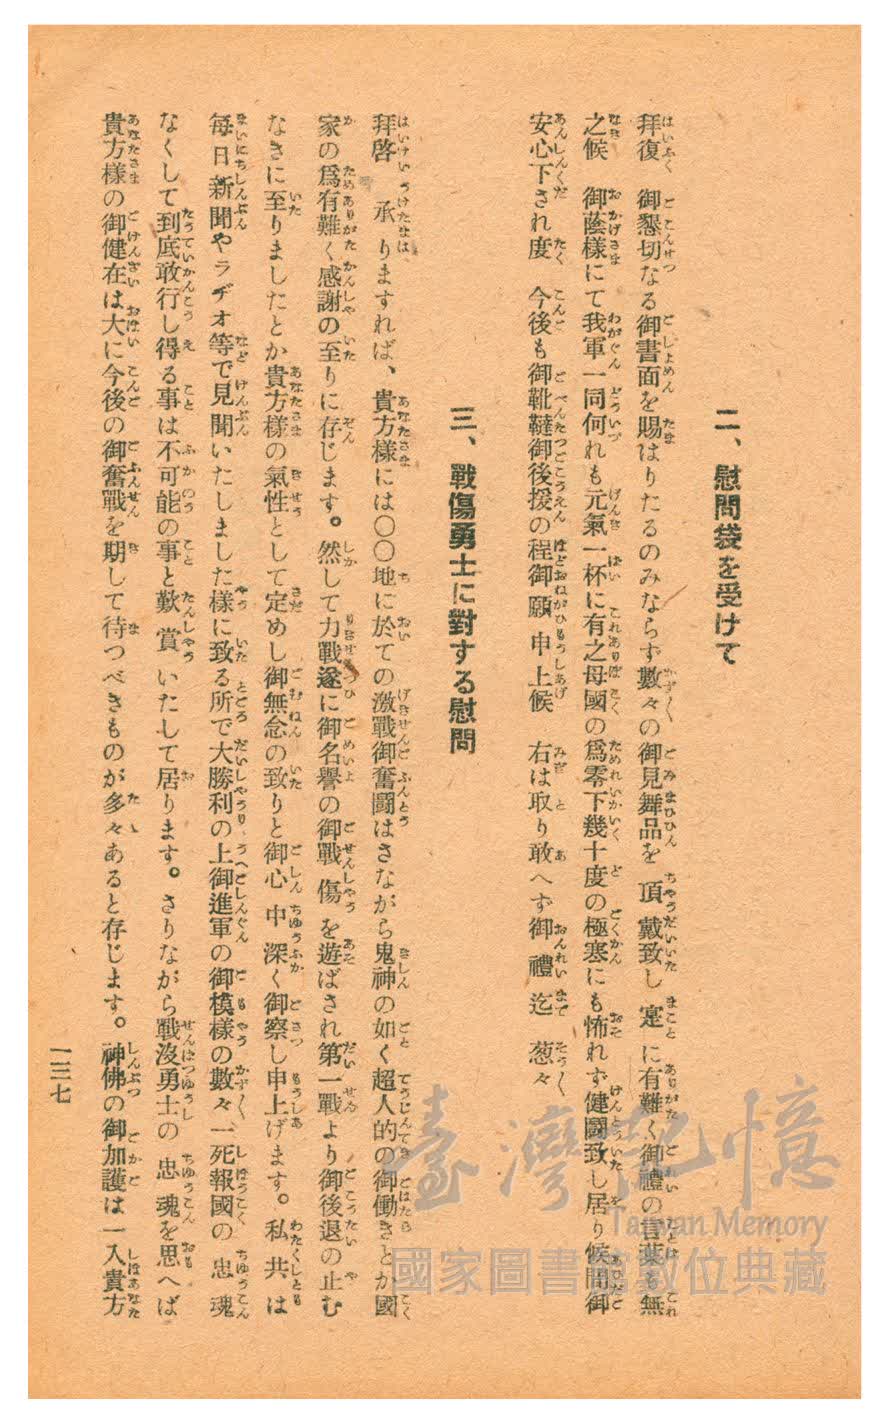 二、慰問袋を受けて
拜復　御懇切なる御書面を賜はりたるのみならず數々の御見舞品を頂戴致し寔に有難く御禮の言葉も無
之候　御蔭樣にて我軍一同何れも元氣一杯に有之母國の爲零下幾十度の極寒にも怖れず健鬪致し居り候間御
安心下され度　今後も御鞭韃御後援の程御願申上候　右は取り敢へず御禮迄　怱々
三、戰傷勇士に對する慰問
拜啓　承りますれば、貴方樣には〇〇地に於ての激戰御奮鬪はさながら鬼神の如く超人的の御働きとか國
家の爲有難く感謝の至りに存じます。然して力戰遂に御名譽の御戰傷を遊ばされ第一戰より御後退の止む
なきに至りましたとか貴方樣の氣性として定めし御無念の致りと御心中深く御察し申上げます。私共は
每日新聞やラヂオ等で見聞いたしました樣に致る所で大勝利の上御進軍の御模樣の數々一死報國の忠魂
なくして到底敢行し得る事は不可能の事と歎賞いたして居ります。さりながら戰沒勇士の忠魂を思へば
貴方樣の御健在は大に今後の御奮戰を期して待つべきものが多々あると存じます。神佛の御加護は一入貴方
一三七
臺灣記憶
Taiwan Memory
國家圖書館數位典藏